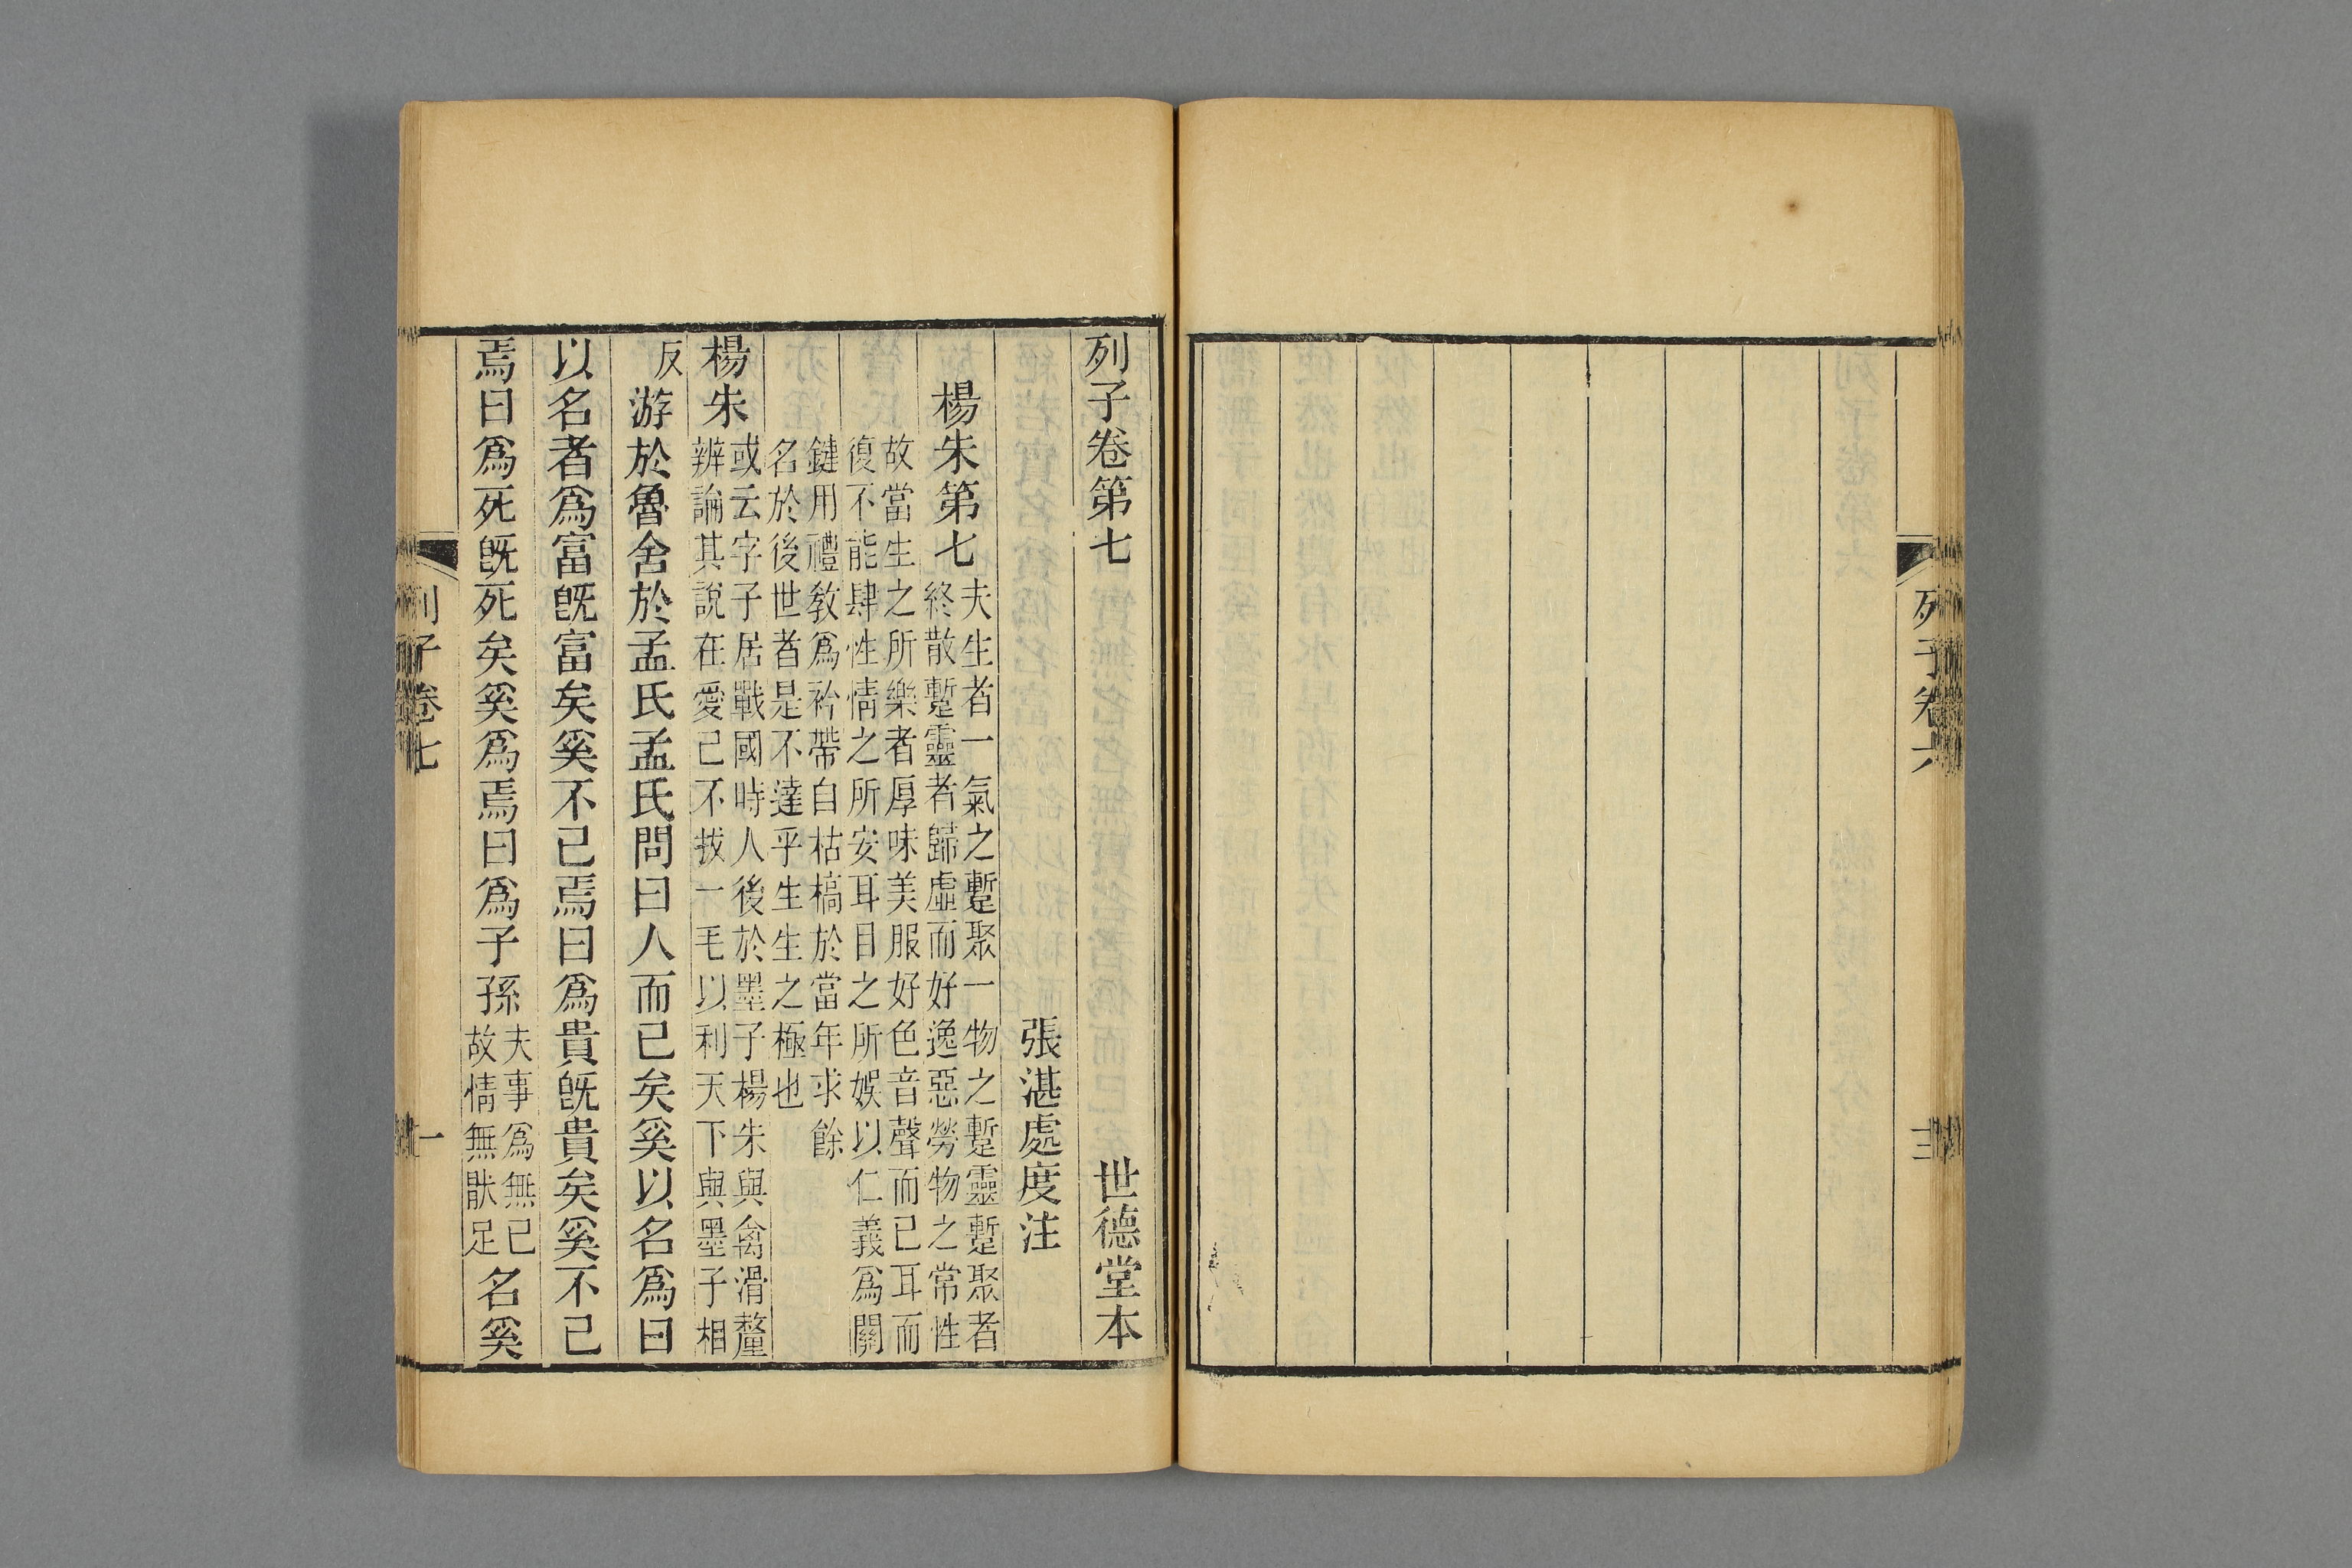 列子卷六
十三
列子卷第七 世德堂本
張湛處度注
楊朱第七 夫生者一氣之蹔聚一物之蹔靈蹔聚者
終散蹔靈者歸虛而好逸惡勞物之常性
故當生之所樂者厚味美服好色音聲而已耳而
復不能肆性情之所安耳目之所娛以仁義爲關
鍵用禮教爲衿帶自枯槁於當年求餘
名於後世者是不達乎生生之極也
楊朱 或云字子居戰國時人後於墨子楊朱與禽滑釐
辨論其說在愛己不拔一毛以利天下與墨子相
反 游於魯舍於孟氏孟氏問曰人而已矣奚以名爲曰
以名者爲富既富矣奚不已焉曰爲貴既貴矣奚不已
焉曰爲死既死矣奚爲焉曰爲子孫 夫事爲無已
故情無猒足 名奚
列子卷七
一